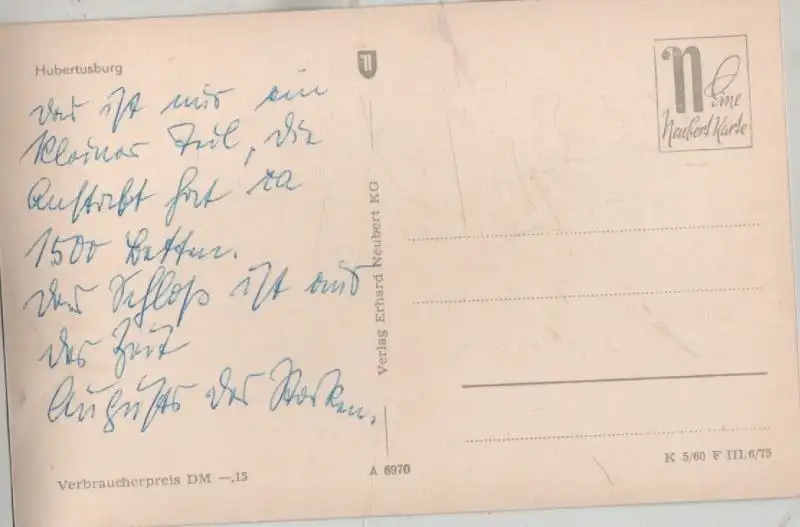 Hubertusburg
das ist nur ein
kleiner Teil, die
Anstalt hat ca
1500 Betten.
Das Schloß ist aus
der Zeit
Augusts des Starken.
Verbraucherpreis DM —,15
Verlag Erhard Neubert KG
A 6970
n
Eine
Neubert Karte
K 5/60 F III/6/75